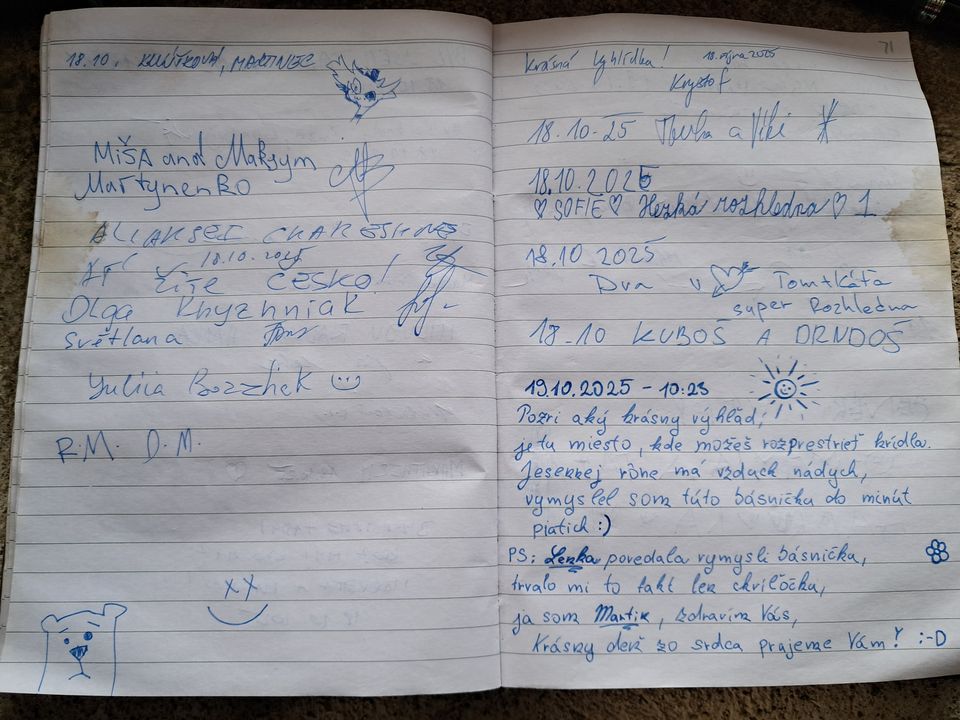 18.10. MARTINEC
MiŠA and Maksym
MartynenKO
ALIAKSEI
18.10.2025
Žije Česko!
Olga Khyzhniak
Světlana
Yuliia
R.M. D.M.
71
Krásná vyhlídka! 18. října 2025
Kryštof
18.10.25 a Viki
18.10.2025
♡ SOFIE ♡ Hezká rozhledna ♡ 1
18.10 2025
Dva v Tom+Káťa
super Rozhledna
18.10 KUBOŠ A DRNDOŠ
19.10.2025 - 10:23
Pozri aký krásny výhľad,
je tu miesto, kde možeš rozprestrieť krídla.
Jesennej rône má vzduch nádych,
vymyslel som túto básnička do minút
piatich :)
PS: Lenka povedala vymysli básnička,
trvalo mi to takt len chviľočka,
ja som Martin, zdravím Vás,
Krásny deň zo srdca prajeme Vám! :-D